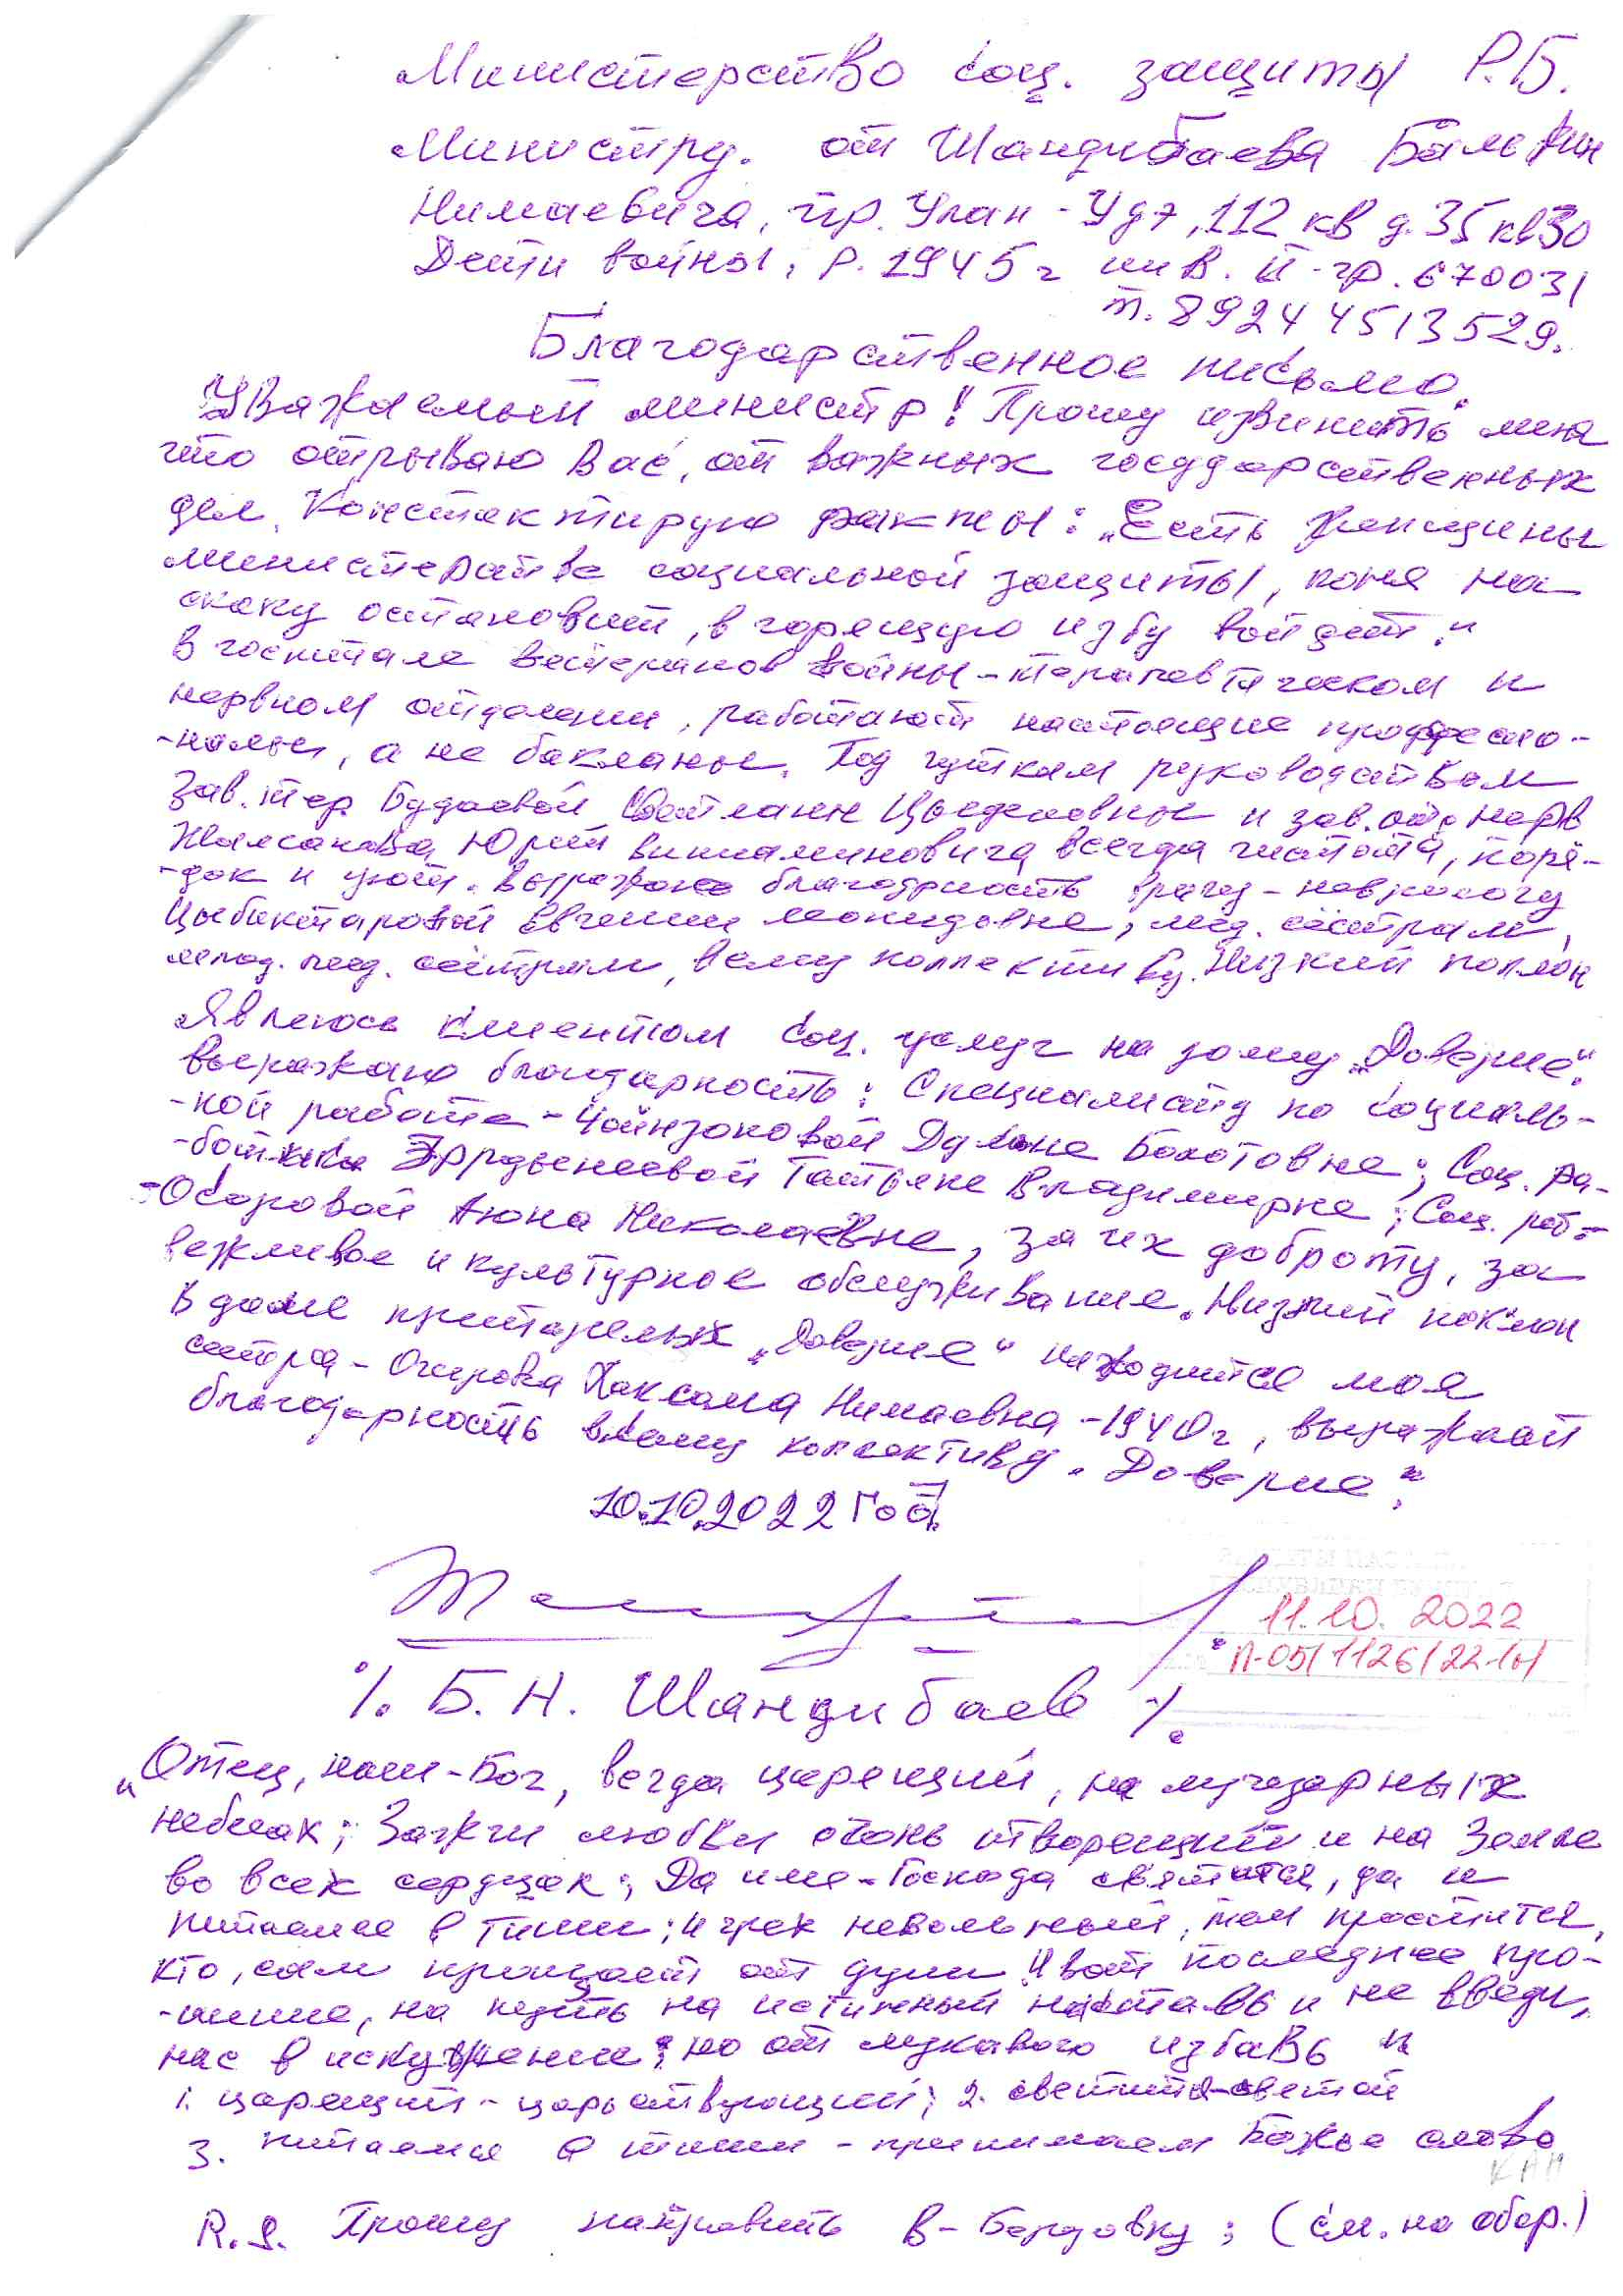 Министерство соц. защиты Р.Б.
Министру. от Шандибаева Бальжин
Нимаевича, пр. Улан-Удэ, 112 кв д. 35 кв 30
Дети войны, р. 1945 г инв. II-гр. 670031
т. 89244513529.
Благодарственное письмо.
Уважаемый министр! Прошу извинить меня
что отрываю Вас, от важных государственных
дел. Констактирую факты: „Есть женщины
министерстве социальной защиты, коня на
скаку остановит, в горящую избу войдет."
В госпитале ветеранов войны - терапевтическом и
нервном отделении, работают настоящие профессио-
-налы, а не бакланы. Под чутким руководством
Зав. тер. Будаевой Светланы Цыденовны и зав. отд. нерв
Юрий Вениаминовича всегда чистота, поря-
-док и уют. Выражаю благодарность врачу - неврологу
Цыбиктаровой Евгении Леонидовне, мед. сёстрам,
млад. мед. сёстрам, всему коллективу. Низкий поклон
Являюсь клиентом соц. услуг на дому „Доверие".
выражаю благодарность: Специалисту по социаль-
-ной работе - Чойнзоновой Болотовне; Соц. ра-
-ботнику Эрдынеевой Татьяне Владимирне; Соц. раб-
-Осоровой Аюна Николаевне, за их доброту, за
вежливое и культурное обслуживание. Низкий поклон
В доме престарелых „Доверие" находится моя
сестра - Очирова Хаксама Нимаевна - 1940 г, выражает
благодарность всему коллективу „Доверие".
10.10.2022 год.
11.10.2022
/. Б. Н. Шандибаев /.
„Отец, наш - Бог, всегда царящий, на лучезарных
небесах; Зажги любви огонь творящий и на Земле
во всех сердцах; Да имя - Господа святится, да и
питаемся в тиши; И грех невольный, тем простится,
кто, сам прощает от души. И вот последнее про-
-шение, на путь на истинный наставь и не введи,
нас в искушение; но от лукавого избавь "
1. царящий - царствующий; 2. святится - святой
3. питаемся в тиши - принимаем Божье слово
P.S. Прошу направить в (см. на обор.)